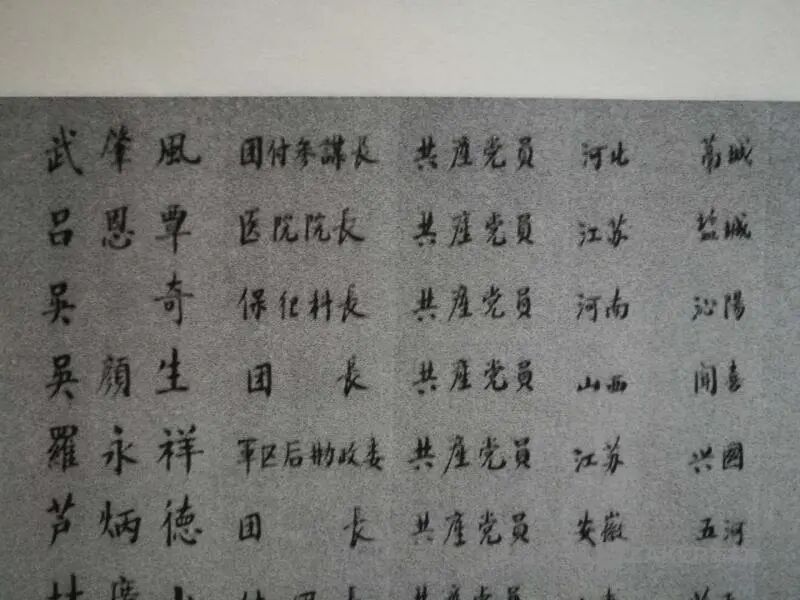 武肇風 团付参謀長 共産党員 河北 藁城
吕恩覃 医院院長 共産党員 江苏 盐城
吳奇 保衛科長 共産党員 河南 沁陽
吳顔生 团長 共産党員 山西 聞喜
羅永祥 軍区后勤政委 共産党員 江苏 兴國
芦炳德 团長 共産党員 安徽 五河